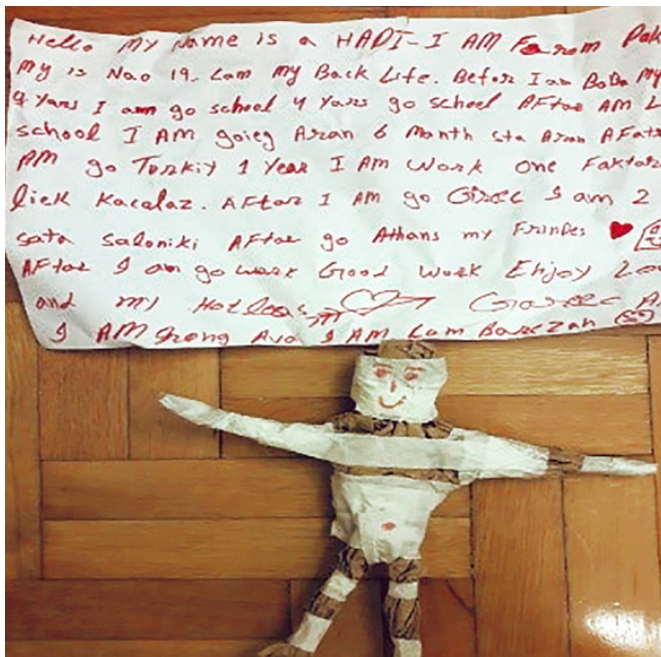 Hello MY Name is a HADI - I AM Farom Pak
My is Nao 19. Lam my Back Life. Befor I am
4 Yars I am go school 4 Yars go school AFtar AM
school I AM goieg Aran 6 Month sta Aran AFatr
AM go Turkiy 1 Year I AM Work one Faktar
liek Kacalaz. AFtar I am go Girec I am 2
sata Saloniki AFtar go Athans my Frindes
AFtar I am go work Good Work Enjoy
and my Hotleas
I AM Ava I AM Lam